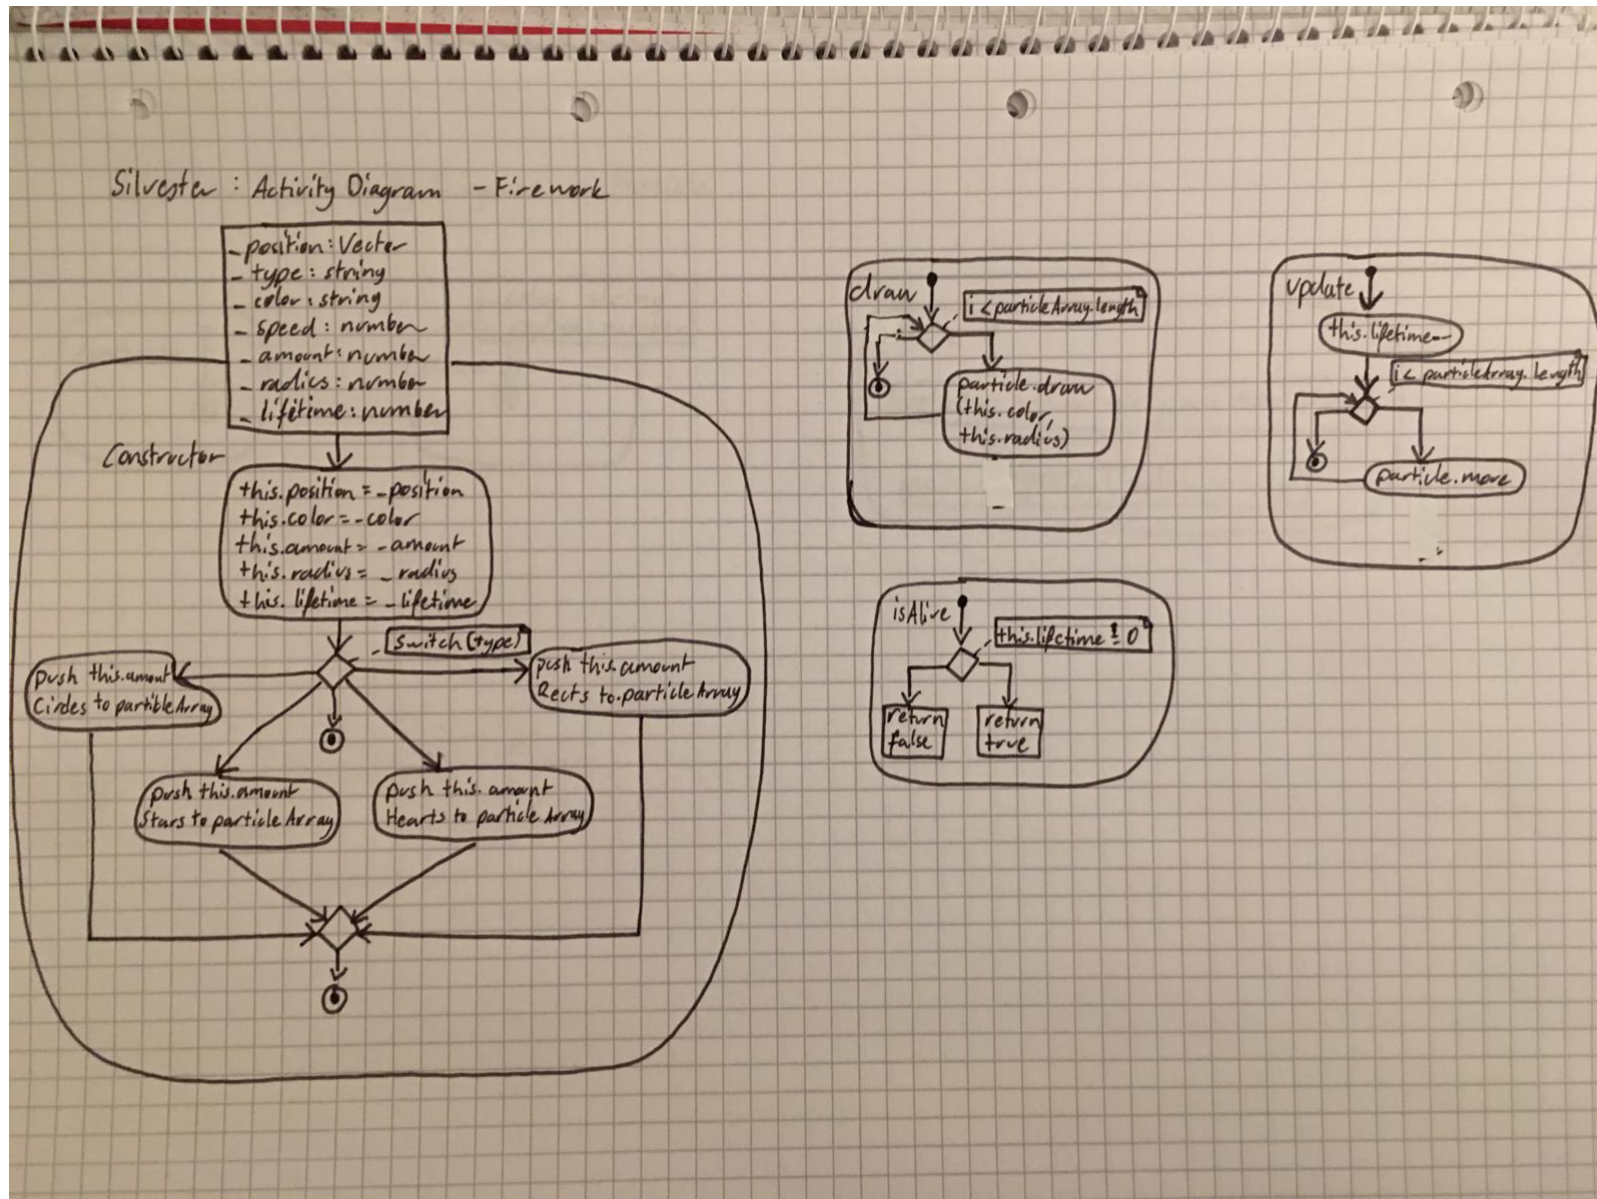 Silvester : Activity Diagram - Firework
_position: Vector
_type: string
_color: string
_speed: number
_amount: number
_radius: number
_lifetime: number
Constructor
this.position = _position
this.color = _color
this.amount = _amount
this.radius = _radius
this.lifetime = _lifetime
switch (type)
push this.amount
Circles to particleArray
push this.amount
Rects to particleArray
push this.amount
Stars to particleArray
push this.amount
Hearts to particle Array
draw
i < particleArray.length
particle.draw
(this.color,
this.radius)
update
this.lifetime--
i < particleArray.length
particle.move
isAlive
this.lifetime != 0
return
false
return
true